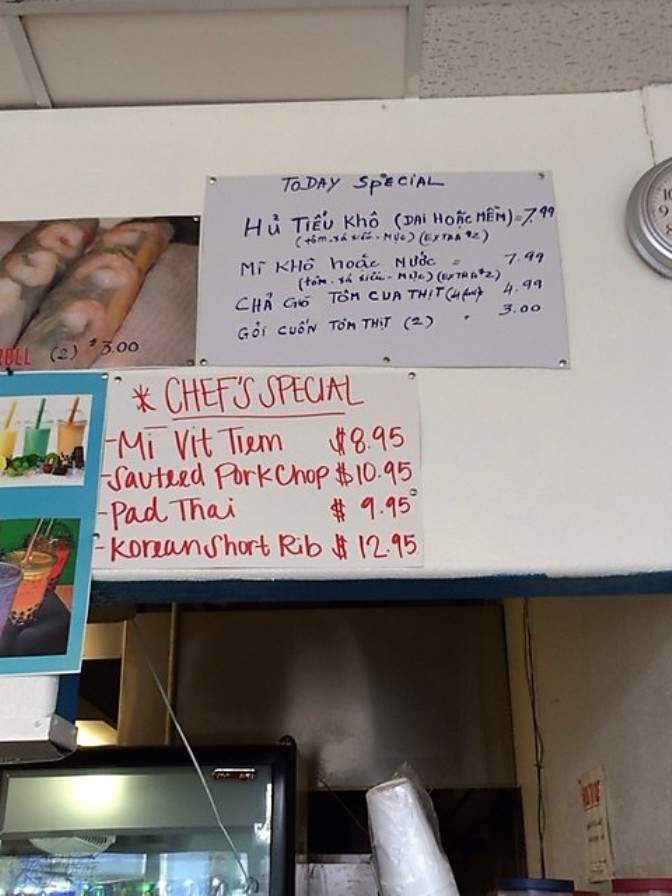 TODAY SPECIAL
HỦ TIẾU KHÔ (DAI HOẶC MỀM) = 7.99
(tôm-xá xíu-mực) (EXTRA $2)
MÌ KHÔ hoặc NƯỚC = 7.99
(tôm-xá xíu-mực) (EXTRA $2)
CHẢ GIÒ TÔM CUA THỊT 4.99
GỎI CUỐN TÔM THỊT (2) 3.00
(2) $3.00
* CHEF'S SPECIAL
-Mì Vit Tiem $8.95
-Sauteed Pork Chop $10.95
-Pad Thai $ 9.95
-Korean Short Rib $ 12.95
10
9
8